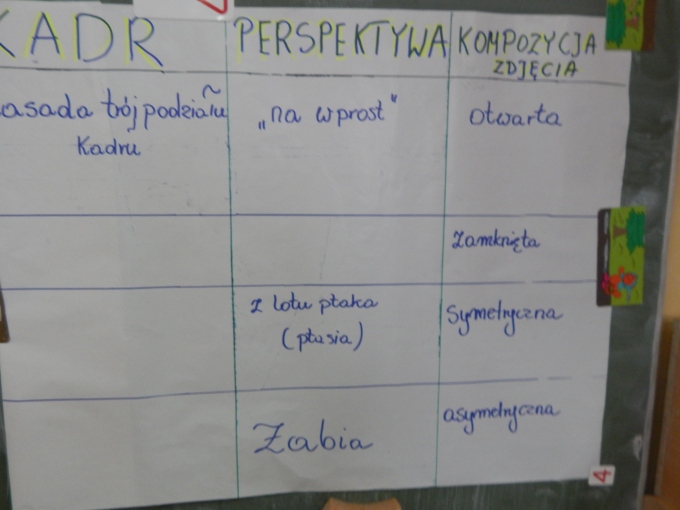 KADR
PERSPEKTYWA
KOMPOZYCJA
ZDJĘCIA
asada trójpodziału
Kadru
„na wprost"
otwarta
Zamknięta
z lotu ptaka
(ptasia)
symetryczna
Żabia
asymetryczna
4